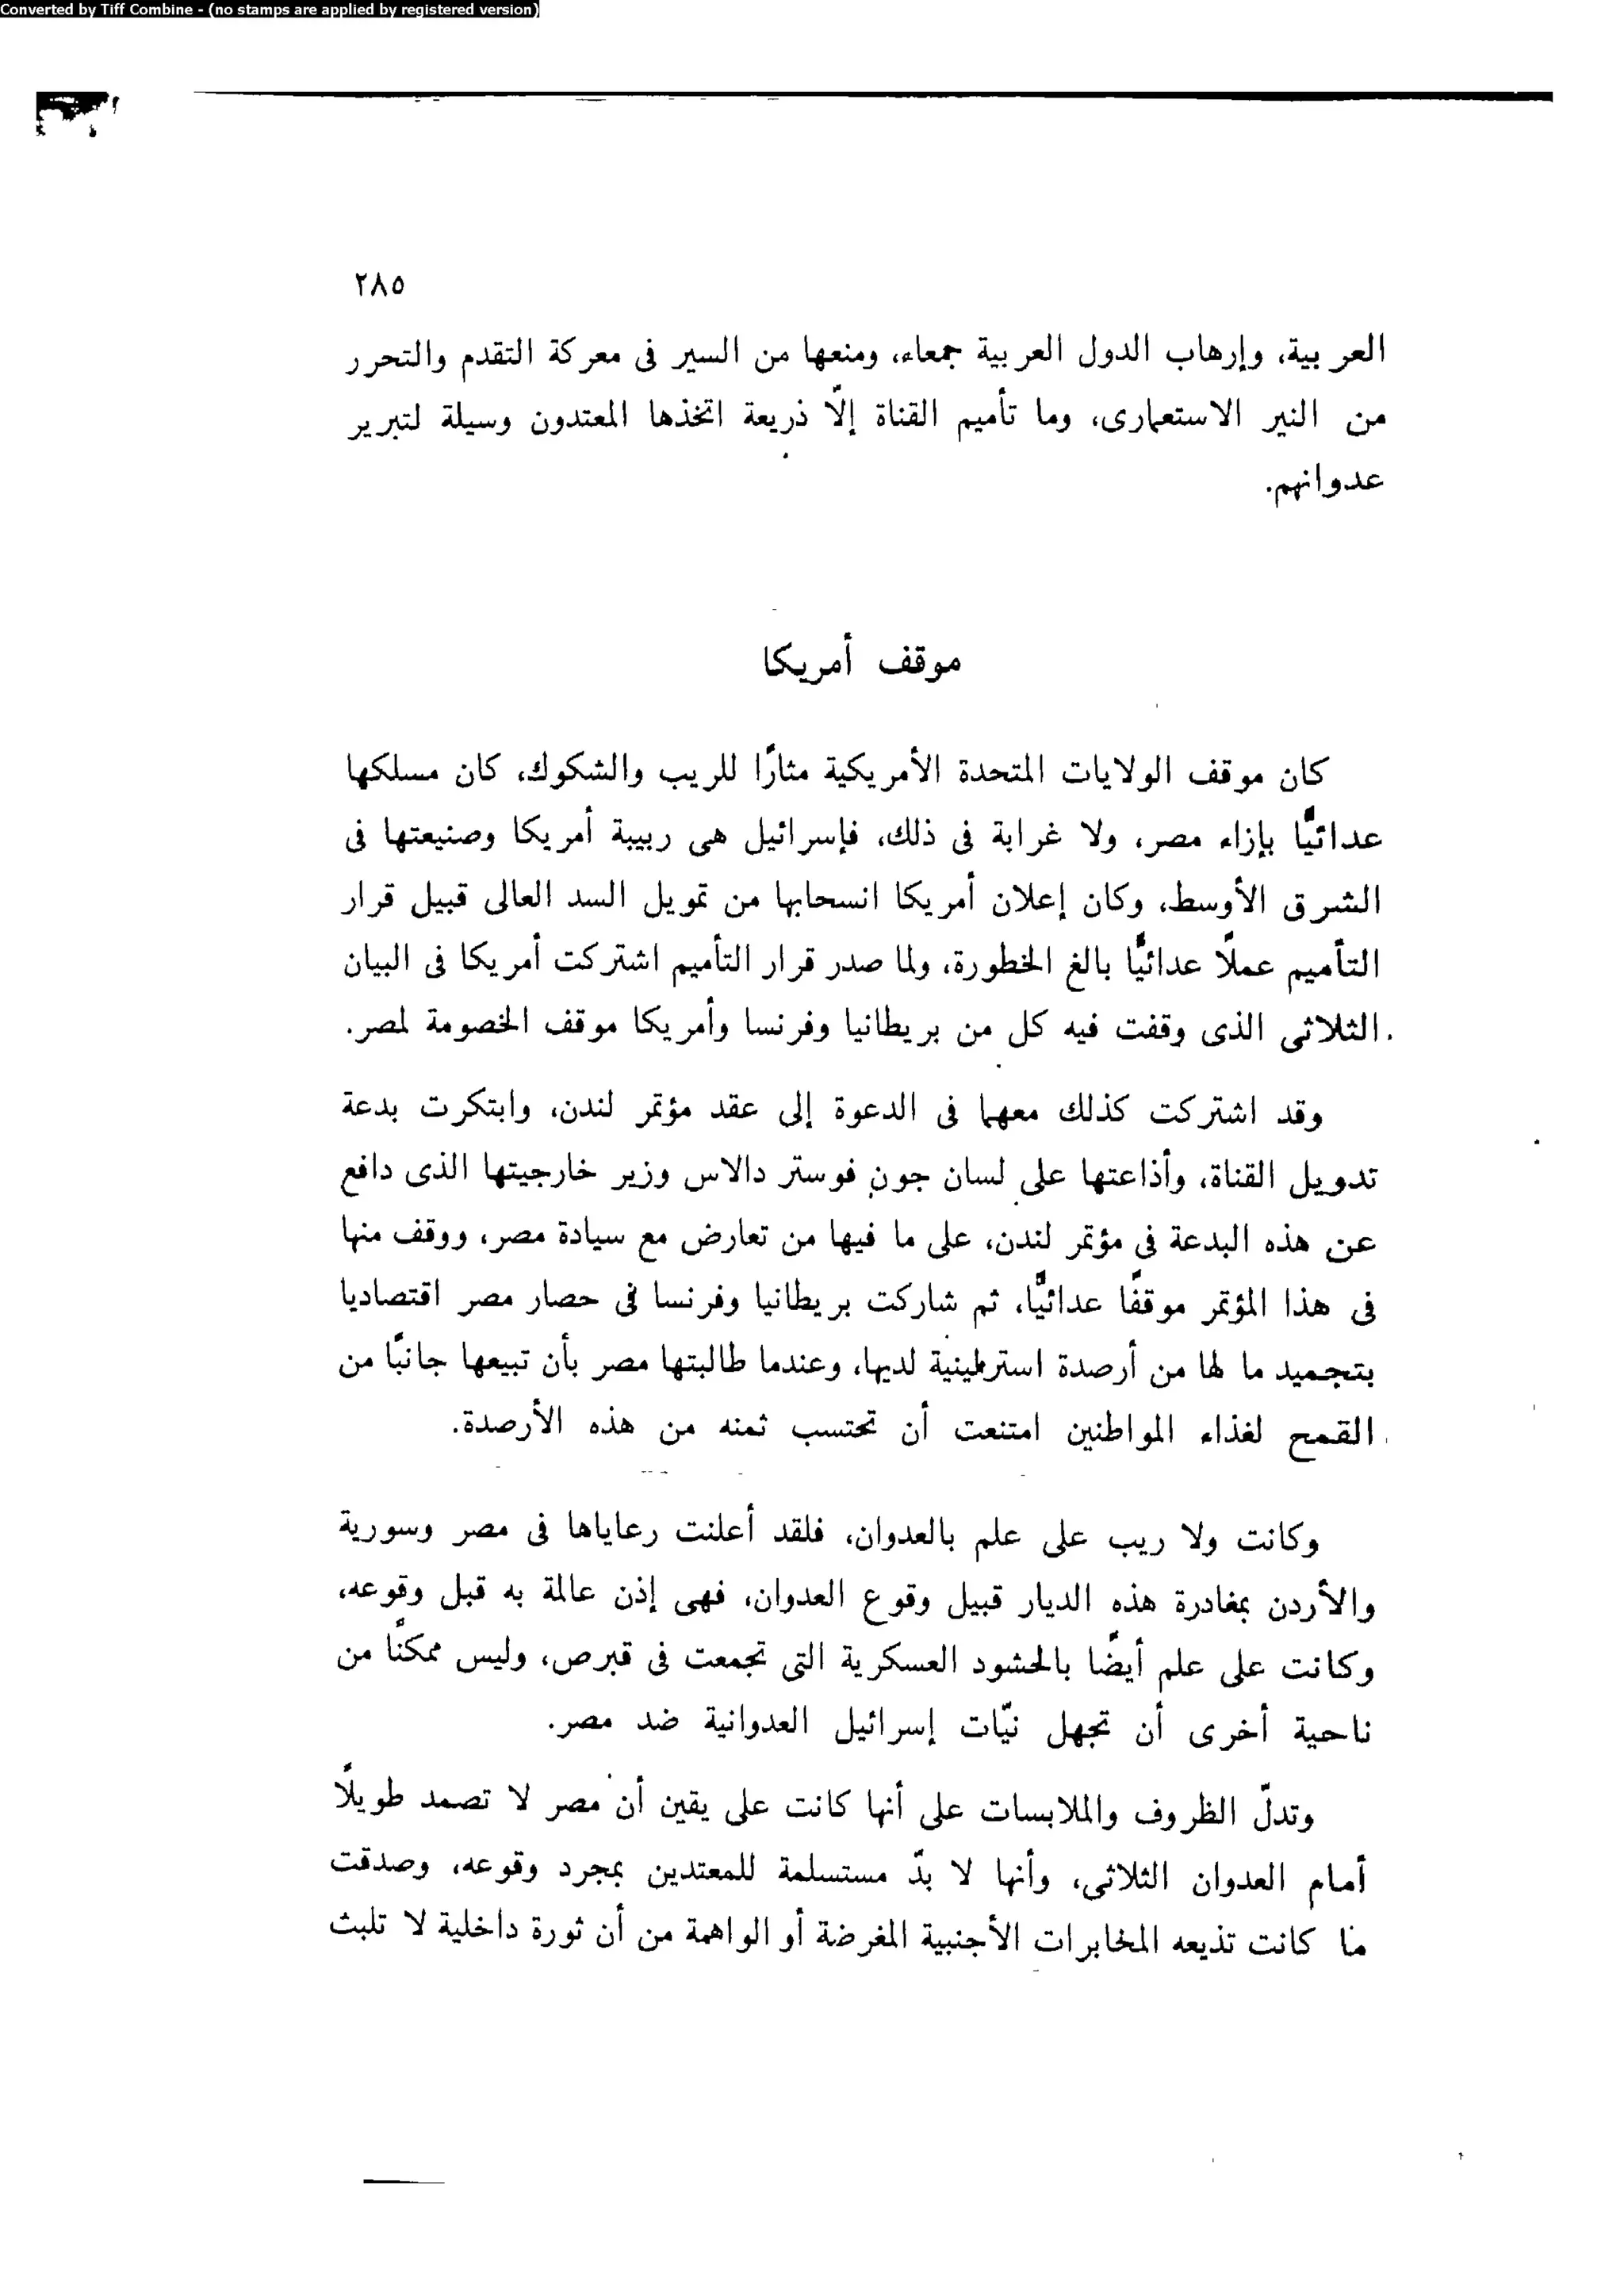 Converted by Tiff Combine - (no stamps are applied by registered version)
٢٨٥
العربية، وإرهاب الدول العربية جمعاء، ومنعها من السير فى معركة التقدم والتحرر
من النير الاستعمارى، وما تأميم القناة إلّا ذريعة اتخذها المعتدون وسيلة لتبرير
عدوانهم.
موقف أمريكا
كان موقف الولايات المتحدة الأمريكية مثارًا للريب والشكوك، كان مسلكها
عدائيًّا بإزاء مصر، ولا غرابة فى ذلك، فإسرائيل هى ربيبة أمريكا وصنيعتها فى
الشرق الأوسط، وكان إعلان أمريكا انسحابها من تمويل السد العالى قبيل قرار
التأميم عملًا عدائيًّا بالغ الخطورة، ولما صدر قرار التأميم اشتركت أمريكا فى البيان
الثلاثى الذى وقفت فيه كل من بريطانيا وفرنسا وأمريكا موقف الخصومة لمصر.
وقد اشتركت كذلك معهما فى الدعوة إلى عقد مؤتمر لندن، وابتكرت بدعة
تدويل القناة، وأذاعتها على لسان جون فوستر دالاس وزير خارجيتها الذى دافع
عن هذه البدعة فى مؤتمر لندن، على ما فيها من تعارض مع سيادة مصر، ووقف منها
فى هذا المؤتمر موقفًا عدائيًّا، ثم شاركت بريطانيا وفرنسا فى حصار مصر اقتصاديا
بتجميد ما لها من أرصدة استرلينية لديها، وعندما طالبتها مصر بأن تبيعها جانبًا من
القمح لغذاء المواطنين امتنعت أن تحتسب ثمنه من هذه الأرصدة.
وكانت ولا ريب على علم بالعدوان، فلقد أعلنت رعاياها فى مصر وسورية
والأردن بمغادرة هذه الديار قبيل وقوع العدوان، فهى إذن عالمة به قبل وقوعه،
وكانت على علم أيضًا بالحشود العسكرية التى تجمعت فى قبرص، وليس ممكنًا من
ناحية أخرى أن تجهل نيّات إسرائيل العدوانية ضد مصر.
وتدلّ الظروف والملابسات على أنها كانت على يقين أن مصر لا تصمد طويلًا
أمام العدوان الثلاثى، وأنها لا بدّ مستسلمة للمعتدين بمجرد وقوعه، وصدقت
ما كانت تذيعه المخابرات الأجنبية المغرضة أو الواهمة من أن ثورة داخلية لا تلبث